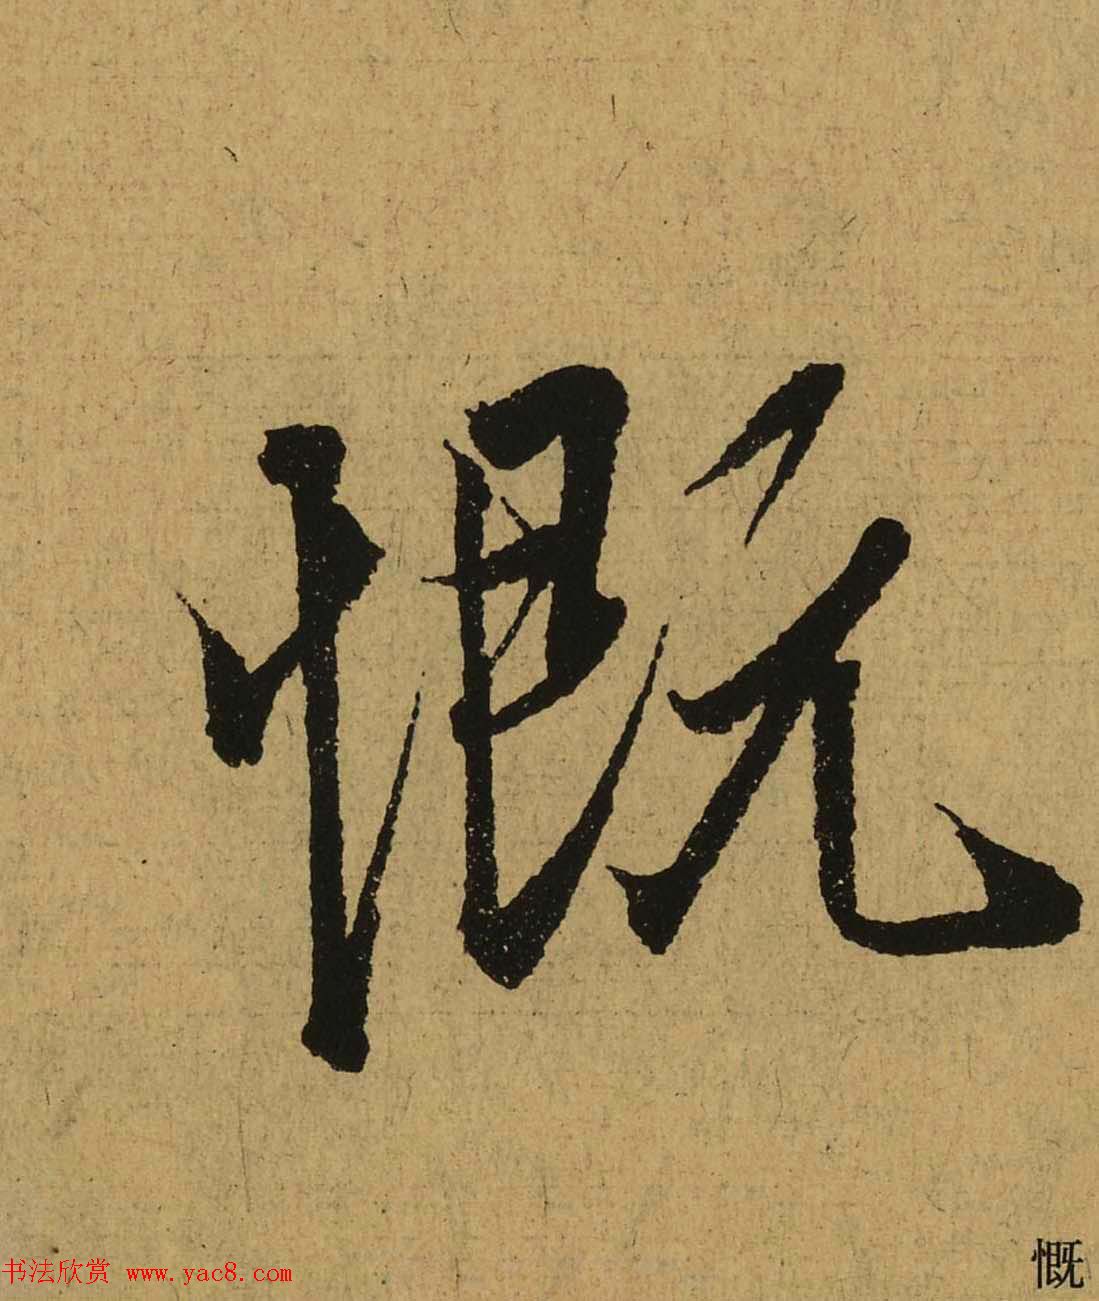 慨
慨
书法欣赏 www.yac8.com